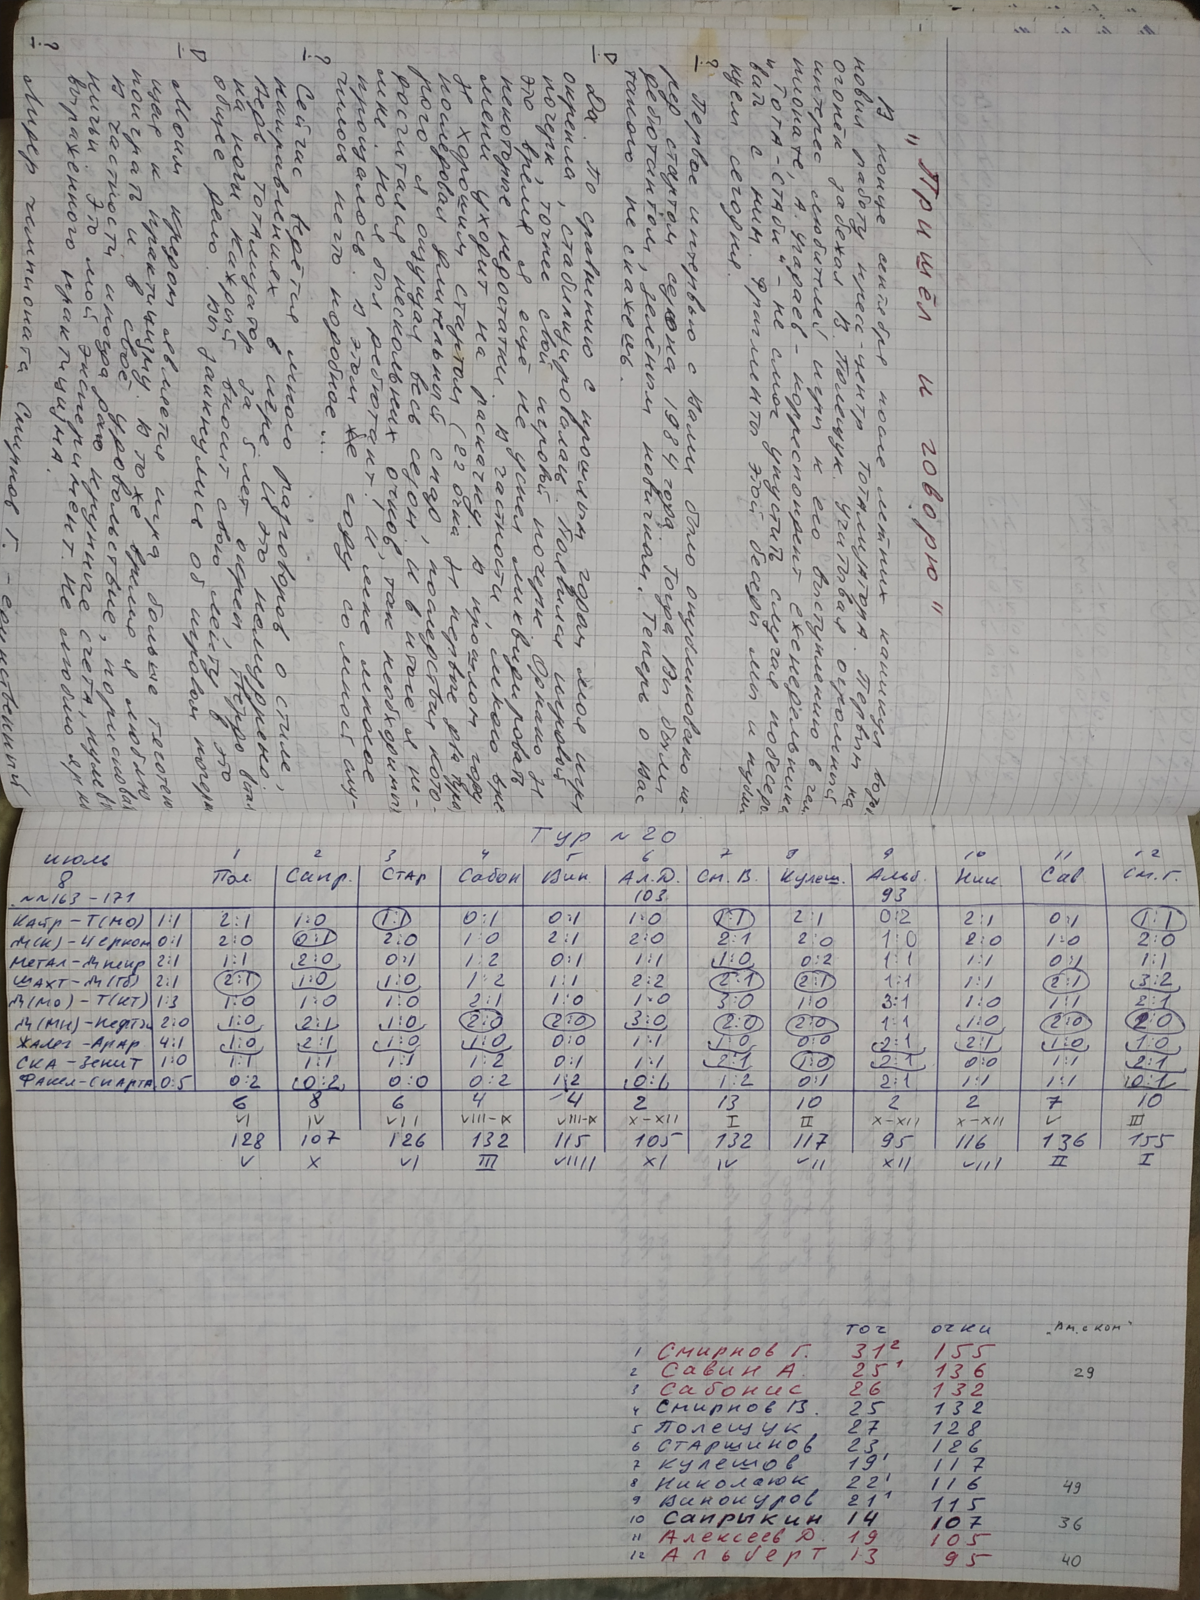 "Пришёл и говорю"
В конце сентября после летних каникул возоб-
новил работу пресс-центр тотализатора. Первым на
огонёк забежал В. Полещук. Учитывая огромный
интерес любителей игры к его выступлению в чем-
пионате, А. Уграев - корреспондент еженедельника
"ТОТА-СТАДИ" - не смог упустить случая побесед-
вать с ним. Фрагменты этой беседы мы и публи-
куем сегодня.
? Первое интервью с Вами было опубликовано пе-
ред стартом сезона 1984 года. Тогда Вы были
дебютантом, зелёным новичком. Теперь о Вас
такого не скажешь.
Да. По сравнению с прошлым годом моя игра
окрепла, стабилизировалась. Появился игровой
почерк, точнее свой игровой почерк. Однако за
это время я ещё не успел ликвидировать
некоторые недостатки. В частности, много вре-
мени уходит на раскачку. В прошлом году
за хорошим стартом (21 очко за первые два тура)
последовал длительный спад, последствия кото-
рого я ощущал весь сезон. И в итоге я не-
досчитался нескольких очков, так необходимых
мне. Но я был дебютант, и мне многое
прощалось. В этом же году со мной слу-
чилось нечто подобное...
? Сейчас ведётся много разговоров о стиле,
направлениях в игре. И это немудрено.
Ведь тотализатор за 5 лет окреп, твёрдо встал
на ноги. Каждый вносит свою лепту в это
общее дело. Вы заикнулись об игровом почерке
Моим кредо является игра больше тяготею-
щая к практицизму. В то же время я люблю
поиграть и в своё удовольствие, порисовать.
В частности иногда даю крупные счета, нулевые
ничьи. Это мой эксперимент. Не люблю ярко
выраженного практицизма.
? Лидер чемпионата Смирнов Г. - единственный
Тур №20
июль 1 2 3 4 5 6 7 8 9 10 11 12
8 Пол. Сапр. Стар Сабон Вин Ал.Д. См.В. Кулеш. Альб. Ник. Сав См.Г.
№№163-171 103 93
Кайр-Т(МО) 1:1 2:1 1:0 1:1 0:1 0:1 1:0 1:1 2:1 0:2 2:1 0:1 1:1
Д(К)-Черном 0:1 2:0 0:1 2:0 1:0 2:1 2:0 2:1 2:0 1:0 2:0 1:0 2:0
Метал-Днепр 2:1 1:1 2:0 0:1 1:2 0:1 1:1 1:0 0:2 1:1 1:1 0:1 1:1
Шахт-Д(Тб) 2:1 2:1 1:0 1:0 1:2 1:1 2:2 2:1 2:1 1:1 1:1 2:1 3:2
Д(МО)-Т(КТ) 1:3 1:0 1:0 1:0 2:1 1:0 1:0 3:0 1:0 3:1 1:0 1:1 2:1
Д(МН)-Нефтч 2:0 1:0 2:1 1:0 2:0 2:0 3:0 2:0 2:0 1:1 1:0 2:0 2:0
Жалг-Арар 4:1 1:0 2:1 1:0 1:0 0:0 1:1 1:0 0:0 2:1 2:1 1:0 1:0
СКА-Зенит 1:0 1:1 1:1 1:1 1:2 0:1 1:1 2:1 1:0 2:1 0:0 1:1 2:1
Факел-Спарта 0:5 0:2 0:2 0:0 0:2 1:2 0:1 1:2 0:1 2:1 1:1 1:1 0:1
6 8 6 4 4 2 13 10 2 2 7 10
VI IV VII VIII-IX VIII-IX X-XII I II X-XII X-XII V III
128 107 126 132 115 105 132 117 95 116 136 155
V X VI III VIIII XI IV VII XII VIII II I
точ очки
1 Смирнов Г. 31² 155
2 Савин А. 25¹ 136 29
3 Сабонис 26 132
4 Смирнов В. 25 132
5 Полещук 27 128
6 Старшинов 23 126
7 Кулешов 19¹ 117
8 Николаюк 22¹ 116 49
9 Винокуров 21¹ 115
10 Сапрыкин 14 107 36
11 Алексеев Д. 19 105
12 Альберт 13 95 40